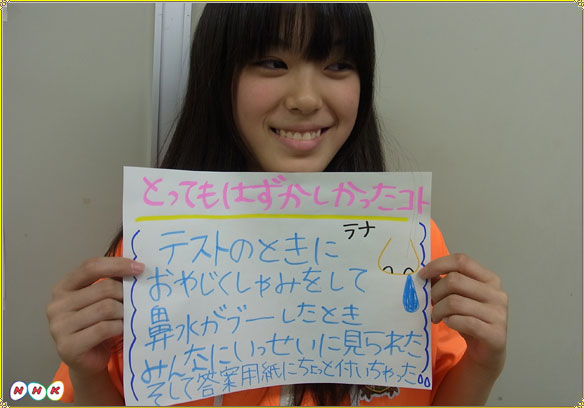 とってもはずかしかったコト
ラナ
テストのときに
おやじくしゃみをして
鼻水がブーしたとき
みんなにいっせいに見られた
そして答案用紙にちょっと付いちゃった。。
NHK